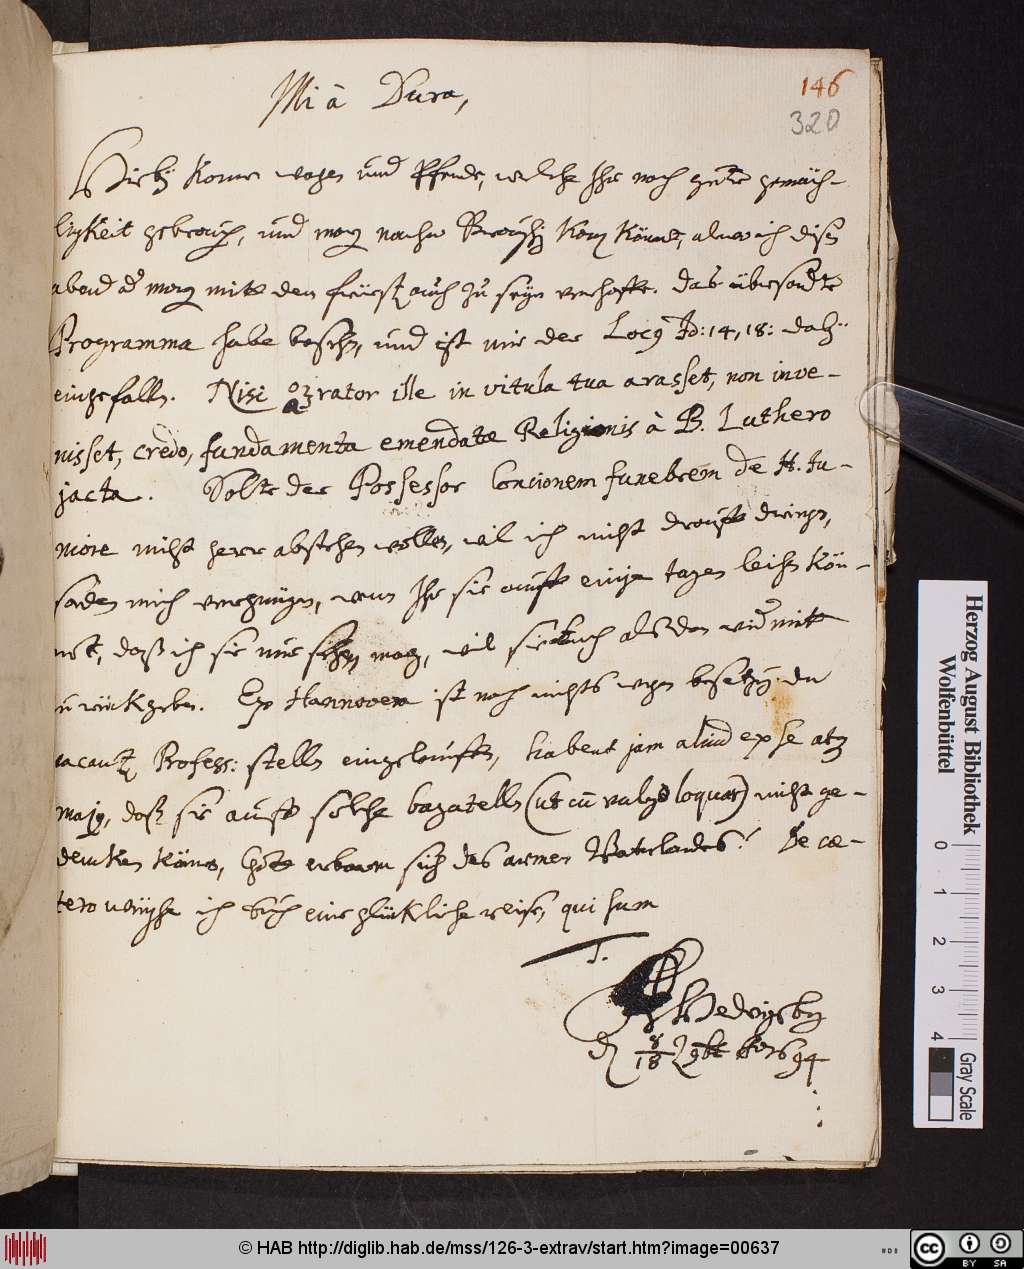 Mi à Dura,
146
320
Hiebÿ Kom̄en wagen und Pferde, welche Ihr nach guter gemäch-
ligkeit gebrauch, und morg nacher können, alwo ich dißn
abend od morg mitt den fürst auch zu seyn verhoffe. das übersandte
Programma habe besehn, und ist mir der Locg Jd: 14, 18: dabÿ
eingefalln. Nisi orator ille in vitula tua arasset, non inve-
nisset, credo, fundamenta emendatæ Religionis à B. Luthero
jacta. Solte der Possessor Concionem funebrem de H. Ju-
more nicht gern abstehen wollen, wil ich nicht drauff dringn,
sondern mich vergnügen, wenn Ihr sie auff einige tagen leihn Kön-
net, daß ich sie nur sehen mag, wil sie Euch alßdan widr mitt
zurükgeben. Ex Hannovera ist noch nichts wegen besetzg. der
vacantz Profess: stelln eingelauffen, habent jam aliud ex se atq
majg, daß sie auff solche bagatelln (ut cū vulgo loquar) nicht ge-
denken können, Gott erbarm sich des armen Vaterlandes! De cæ-
tero wünsche ich Euch eine glükliche reise, qui sum
T.
Hedwigsbg
d 8/18 9br 1694
Herzog August Bibliothek
Wolfenbüttel
0
1
2
3
4
Gray Scale
© HAB http://diglib.hab.de/mss/126-3-extrav/start.htm?image=00637
cc
BY SA